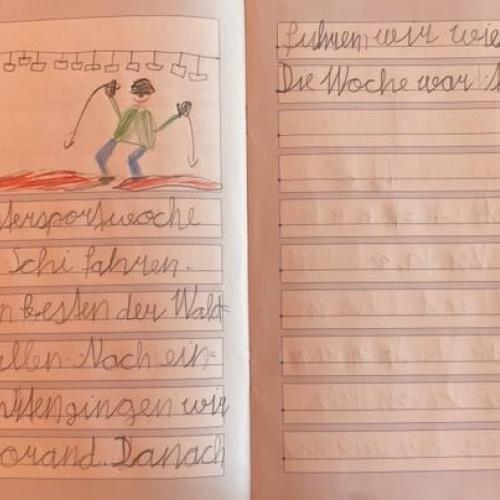 tersportwoche
Schi fahren.
n besten der Wald=
allen. Nach ein=
gingen wir
orand. Danach
fuhren wir wie
Die Woche war